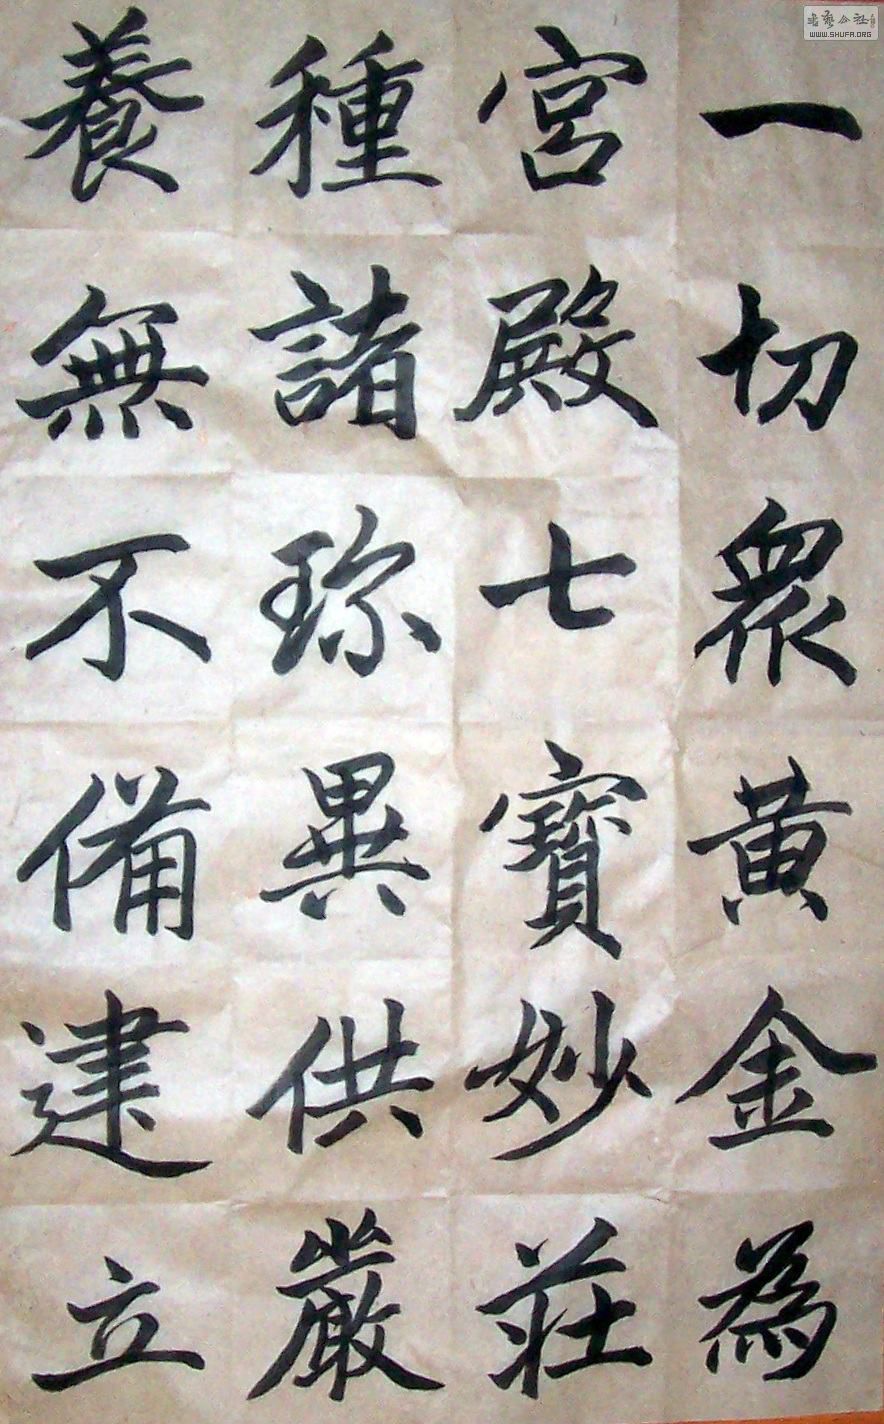 一切眾黄金為
宮殿七寶妙莊
種諸珍異供嚴
養無不備建立
書藝公社
WWW.SHUFA.ORG